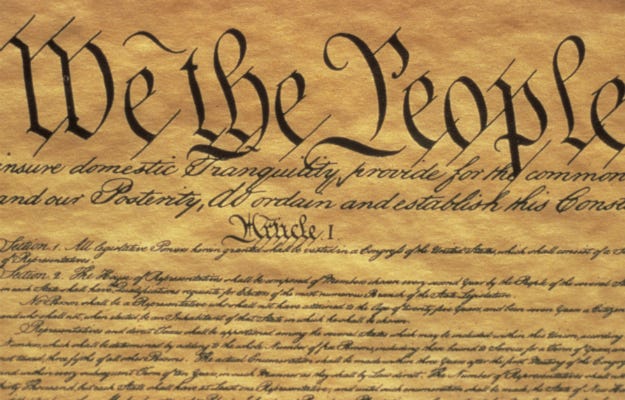 We the People
insure domestic Tranquility, provide for the common
and our Posterity, do ordain and establish this Const
Article. I.
Section. 1. All legislative Powers herein granted shall be vested in a Congress of the United States, which shall consist of a S
of Representatives.
Section. 2. The House of Representatives shall be composed of Members chosen every second Year by the People of the several S
in each State shall have Qualifications requisite for Electors of the most numerous Branch of the State Legislature.
No Person shall be a Representative who shall not have attained to the Age of twenty five Years, and been seven Years a Citizen
and who shall not, when elected, be an Inhabitant of that State in which he shall be chosen.
Representatives and direct Taxes shall be apportioned among the several States which may be included within this Union, according
Numbers, which shall be determined by adding to the whole Number of free Persons, including those bound to Service for a Term of Years, an
not taxed, three fifths of all other Persons. The actual Enumeration shall be made within three Years after the first Meeting of the Congr
and within every subsequent Term of ten Years, in such Manner as they shall by Law direct. The Number of Representatives shall not
thirty Thousand, but each State shall have at Least one Representative; and until such enumeration shall be made, the State of New Ha